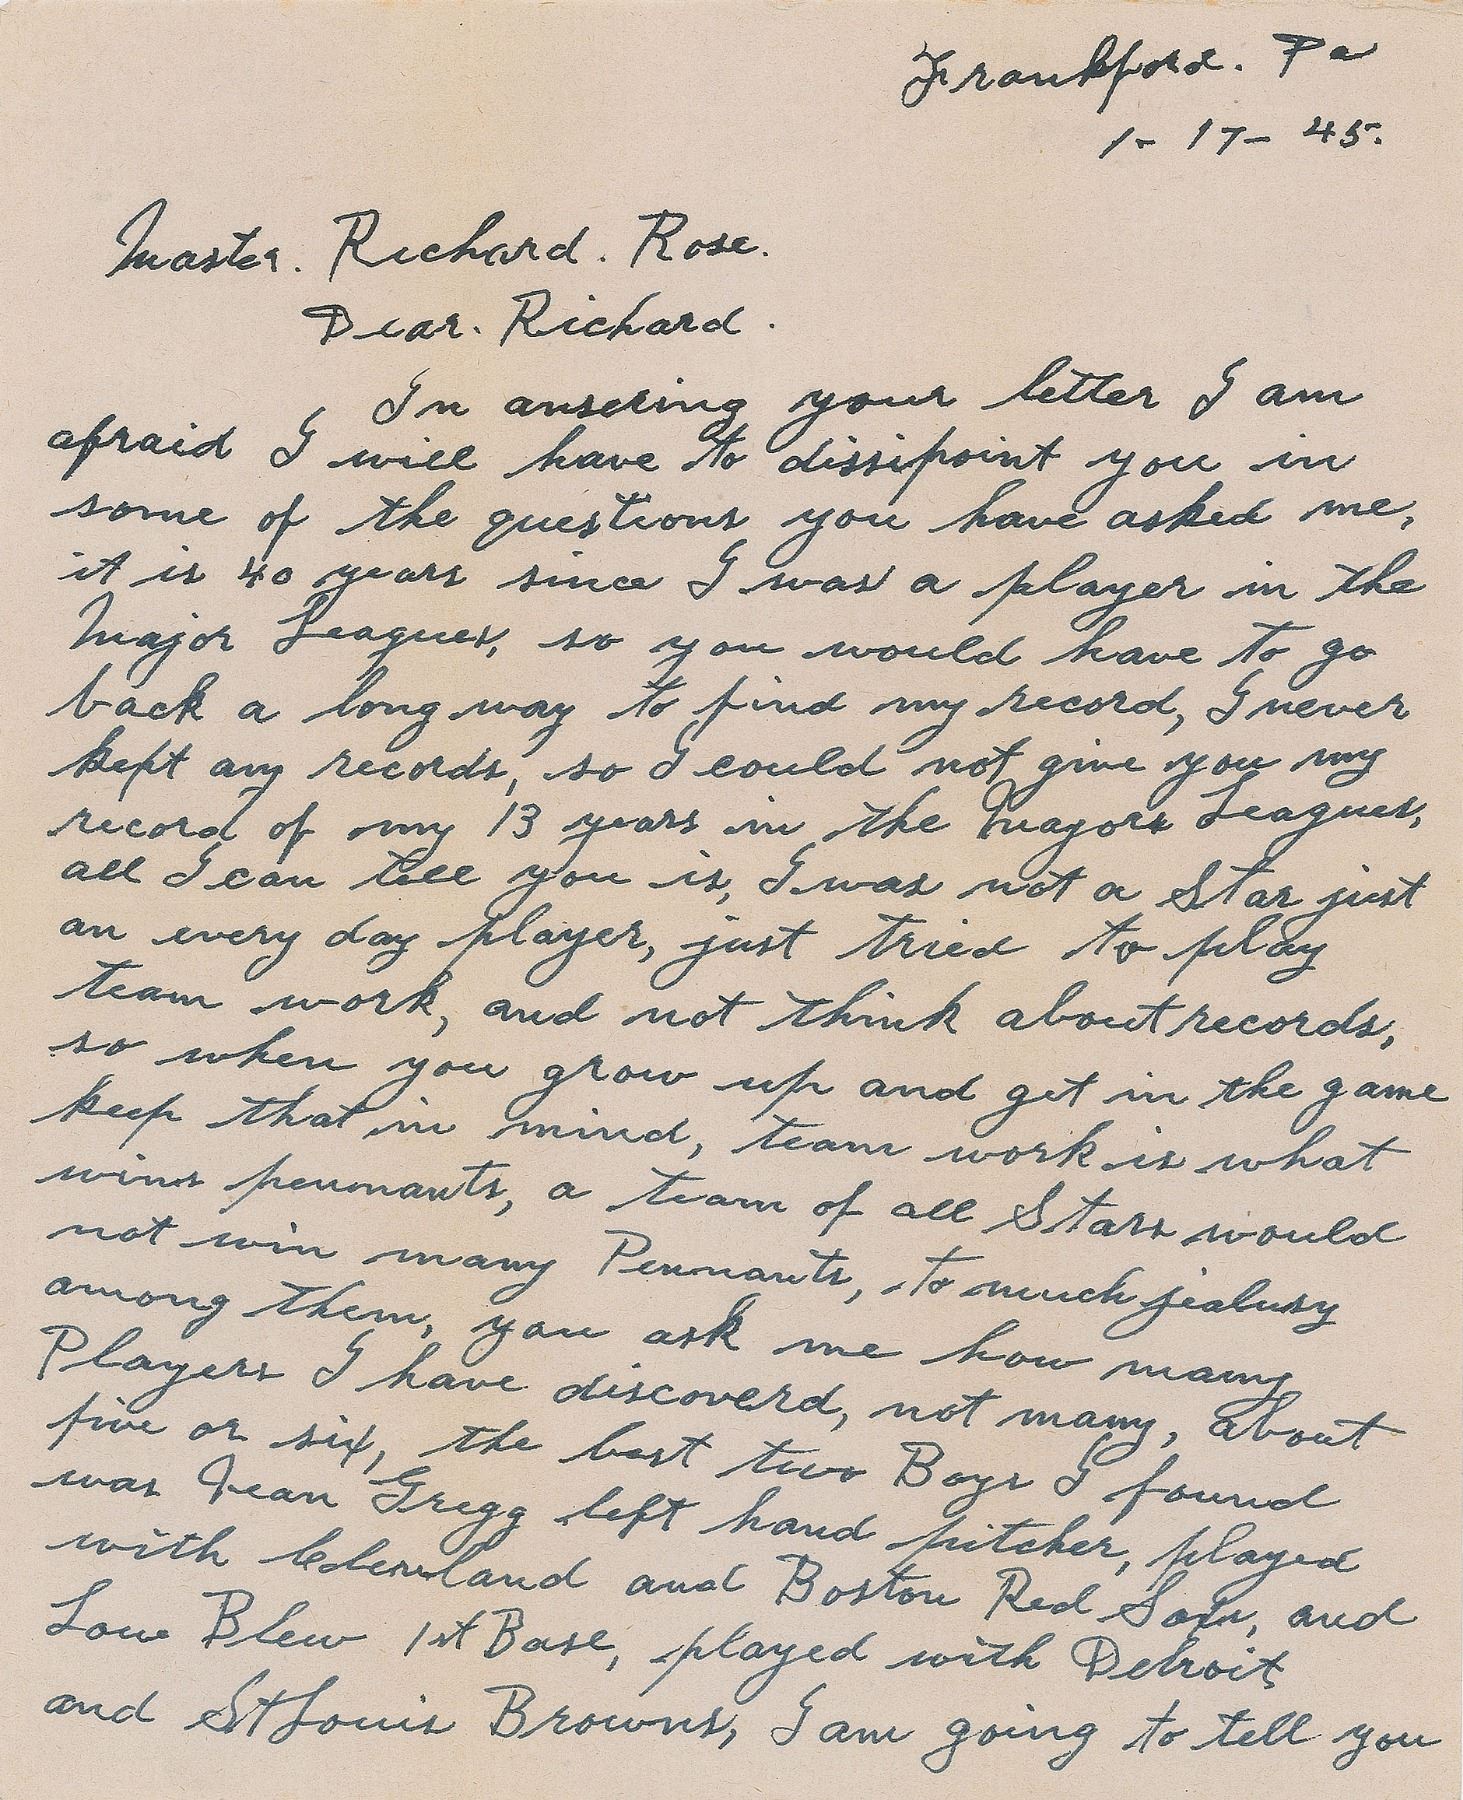 Frankford. Pa
1- 17- 45.
Master. Richard. Rose.
Dear. Richard.
In ansering your letter I am
afraid I will have to dissipoint you in
some of the questions you have asked me,
it is 40 years since I was a player in the
Major Leagues, so you would have to go
back a long way to find my record, I never
kept any records, so I could not give you my
record of my 13 years in the Majors Leagues,
all I can tell you is, I was not a Star just
an every day player, just tried to play
team work, and not think about records,
so when you grow up and get in the game
keep that in mind, team work is what
wins pennants, a team of all Stars would
not win many Pennants, to much jealusy
among them, you ask me how many
Players I have discoverd, not many, about
five or six, the best two Boys I found
was Jean Gregg left hand pitcher, played
with Cleveland and Boston Red Soxs, and
Low Blew 1st Base, played with Detroit
and St Louis Browns, I am going to tell you